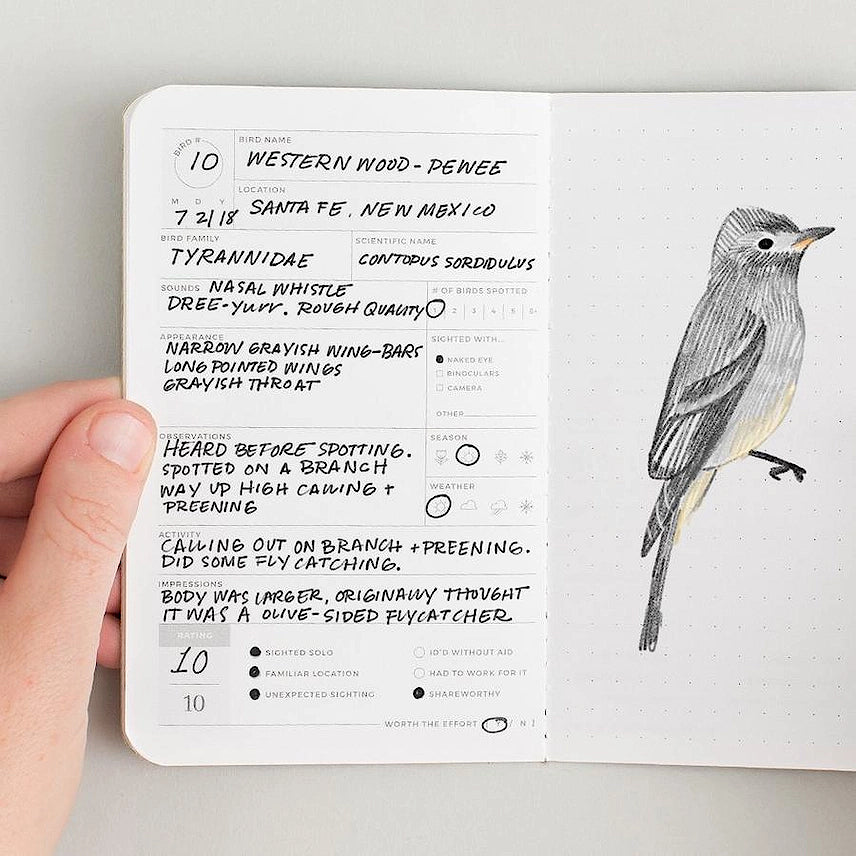 BIRD # BIRD NAME
10 WESTERN WOOD-PEWEE
LOCATION
M D Y
7 21 18 SANTA FE, NEW MEXICO
BIRD FAMILY SCIENTIFIC NAME
TYRANNIDAE CONTOPUS SORDIDULUS
SOUNDS NASAL WHISTLE # OF BIRDS SPOTTED
DREE-YURR. ROUGH QUALITY 1 2 3 4 5 6+
APPEARANCE SIGHTED WITH...
NARROW GRAYISH WING-BARS NAKED EYE
LONG POINTED WINGS BINOCULARS
GRAYISH THROAT CAMERA
OTHER
OBSERVATIONS SEASON
HEARD BEFORE SPOTTING.
SPOTTED ON A BRANCH
WAY UP HIGH CALLING + WEATHER
PREENING
ACTIVITY
CALLING OUT ON BRANCH + PREENING.
DID SOME FLY CATCHING.
IMPRESSIONS
BODY WAS LARGER, ORIGINALLY THOUGHT
IT WAS A OLIVE-SIDED FLYCATCHER
RATING
10 SIGHTED SOLO ID'D WITHOUT AID
FAMILIAR LOCATION HAD TO WORK FOR IT
10 UNEXPECTED SIGHTING SHAREWORTHY
WORTH THE EFFORT [ Y / N ]